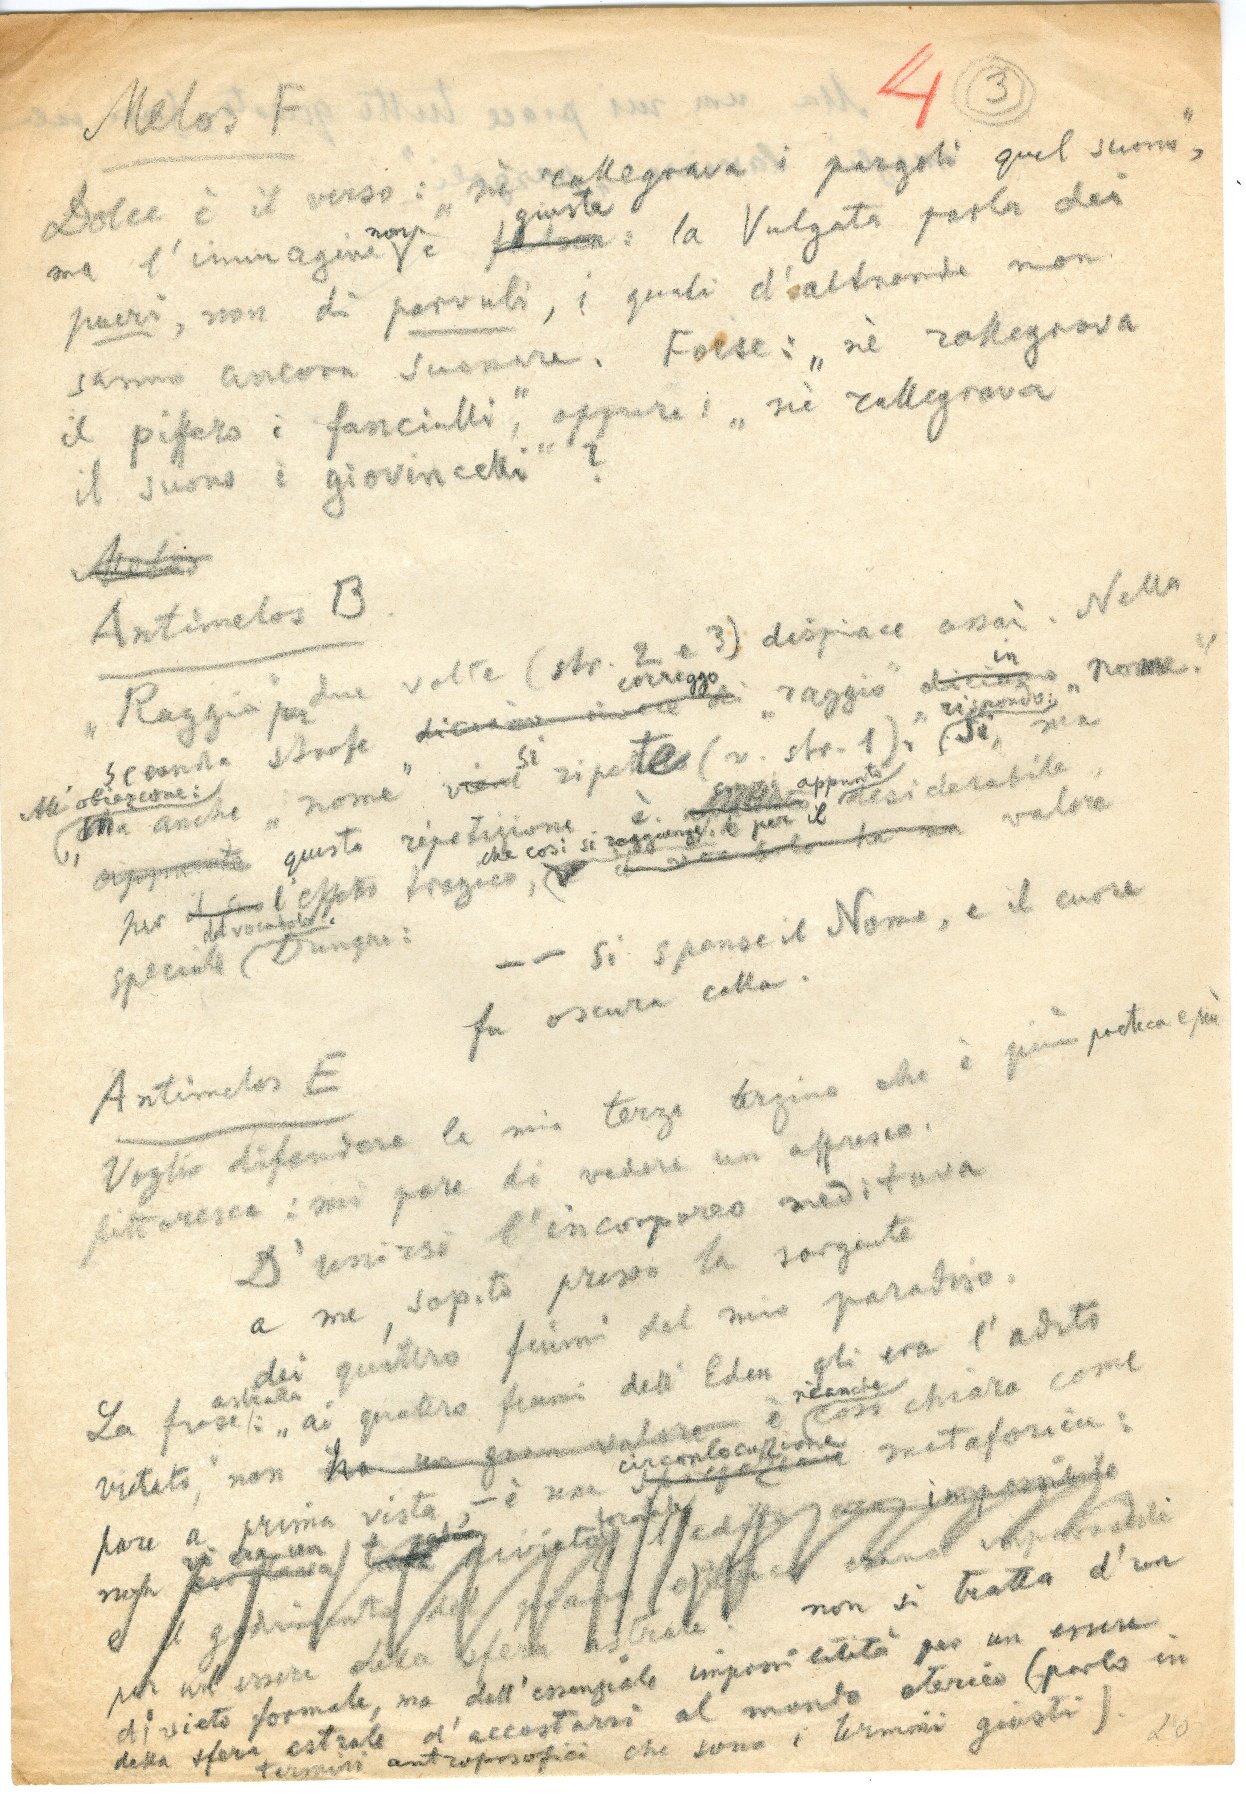 4 3
Melos F
Dolce è il verso: „nè rallegrava i pargoli quel suono",
ma l'immagine non è falsa giusta: la Vulgata parla dei
pueri, non di parvuli, i quali d'altronde non
sanno ancora suonare. Forse: „nè rallegrava
il piffero i fanciulli", oppure: „nè rallegrava
il suono i giovincelli"?
Melos
Antimelos B.
„Raggia" due volte (str. 2 e 3) dispiace assai. Nella
seconda strofe per correggo „raggia" in „nome."
All'obiezione: „Ma anche „nome" si ripete (v. str. 1)", rispondo: Sì, ma
questa ripetizione è appunto desiderabile,
per l'effetto tragico, che così si raggiunge, e per il valore
speciale del vocabolo. Dunque:
— — Si spense il Nome, e il cuore
fu oscura cella.
Antimelos E
Voglio difendere la mia terza terzina che è più poetica e più
pittoresca: mi pare di vedere un affresco.
D'unirsi l'incorporeo meditava
a me, sopito presso la sorgente
dei quattro fiumi del mio paradiso.
La frase astratta: „ai quattro fiumi dell'Eden gli era l'adito
vietato", non ha un gran valore è neanche così chiara come
pare a prima vista, – è una circonlocuzione metaforica:
non vi era un divieto
e il godimento
per un essere della sfera astrale: non si tratta d'un
divieto formale, ma dell'essenziale impossibilità per un essere
della sfera astrale d'accostarsi al mondo eterico (parlo in
termini antroposofici che sono i termini giusti).
20